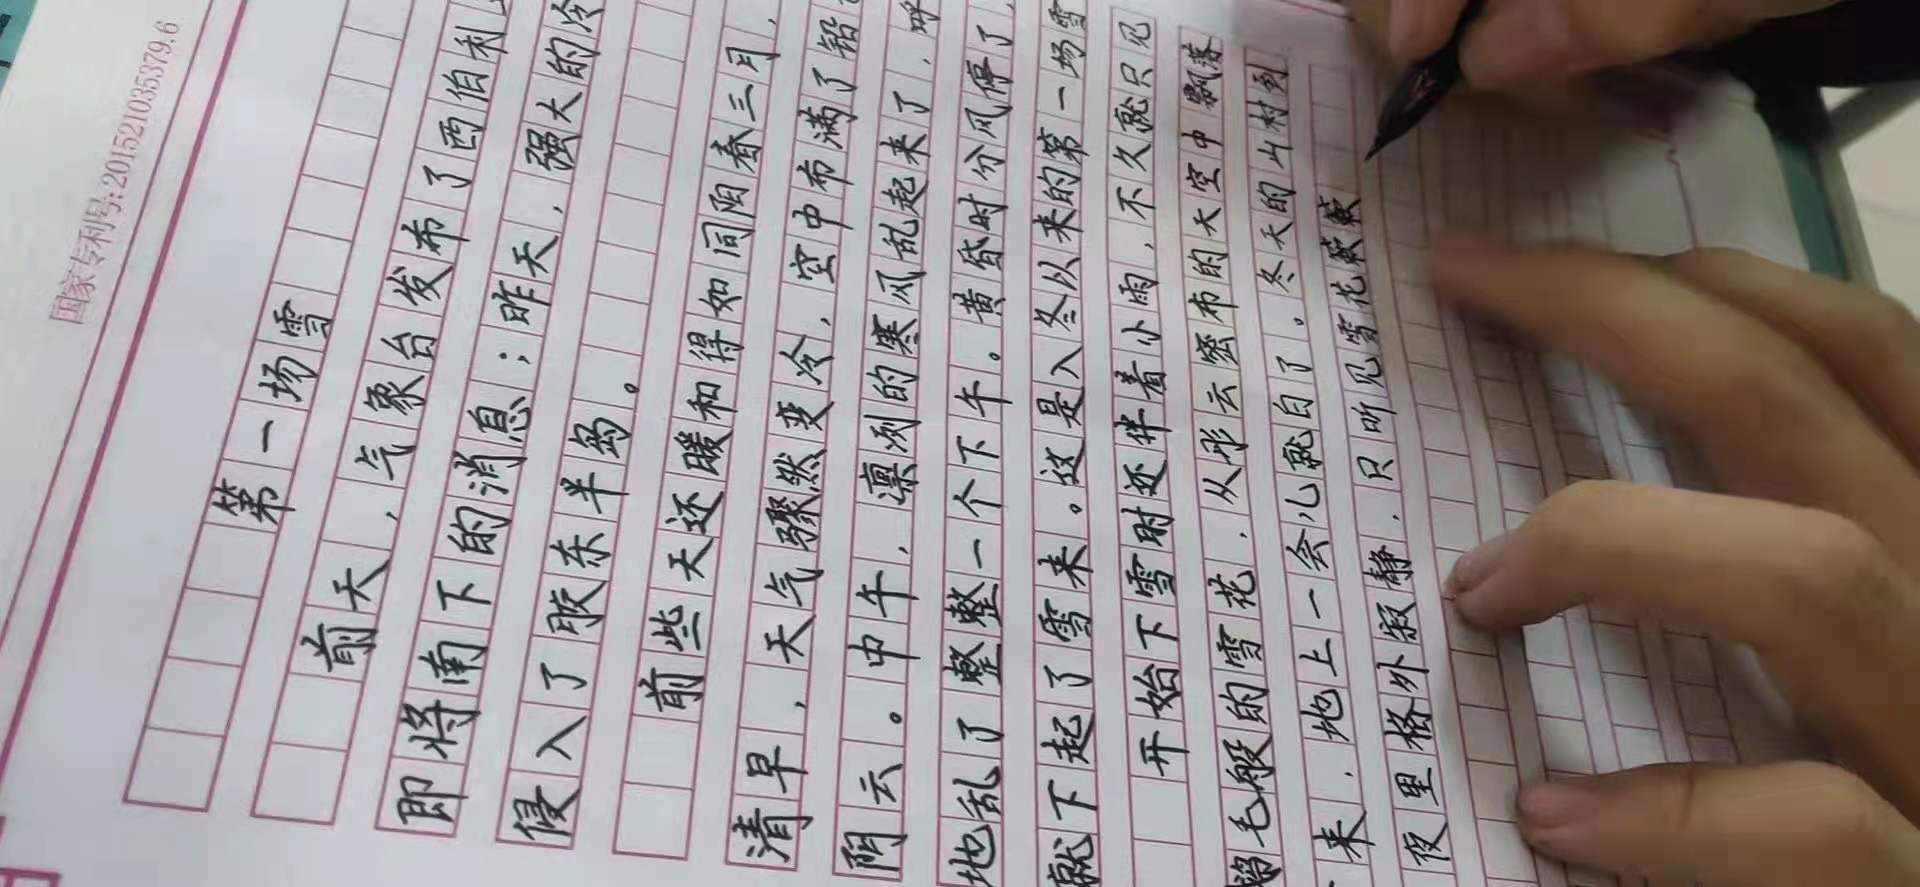 国家专利号:201521035379.6
第一场雪
前天,气象台发布了西伯利
即将南下的消息;昨天,强大的冷
侵入了胶东半岛。
前些天还暖和得如同阳春三月,
清早,天气骤然变冷,空中布满了铅
阴云。中午,凛冽的寒风乱起来了,呼
地乱了整整一个下午。黄昏时分风停了,
就下起了雪来。这是入冬以来的第一场雪
开始下雪时还伴着小雨,不久就只见
毛般的雪花,从彤云密布的天空中飘落
来,地上一会儿就白了。冬天的山村到
夜里格外寂静,只听见雪花簌簌